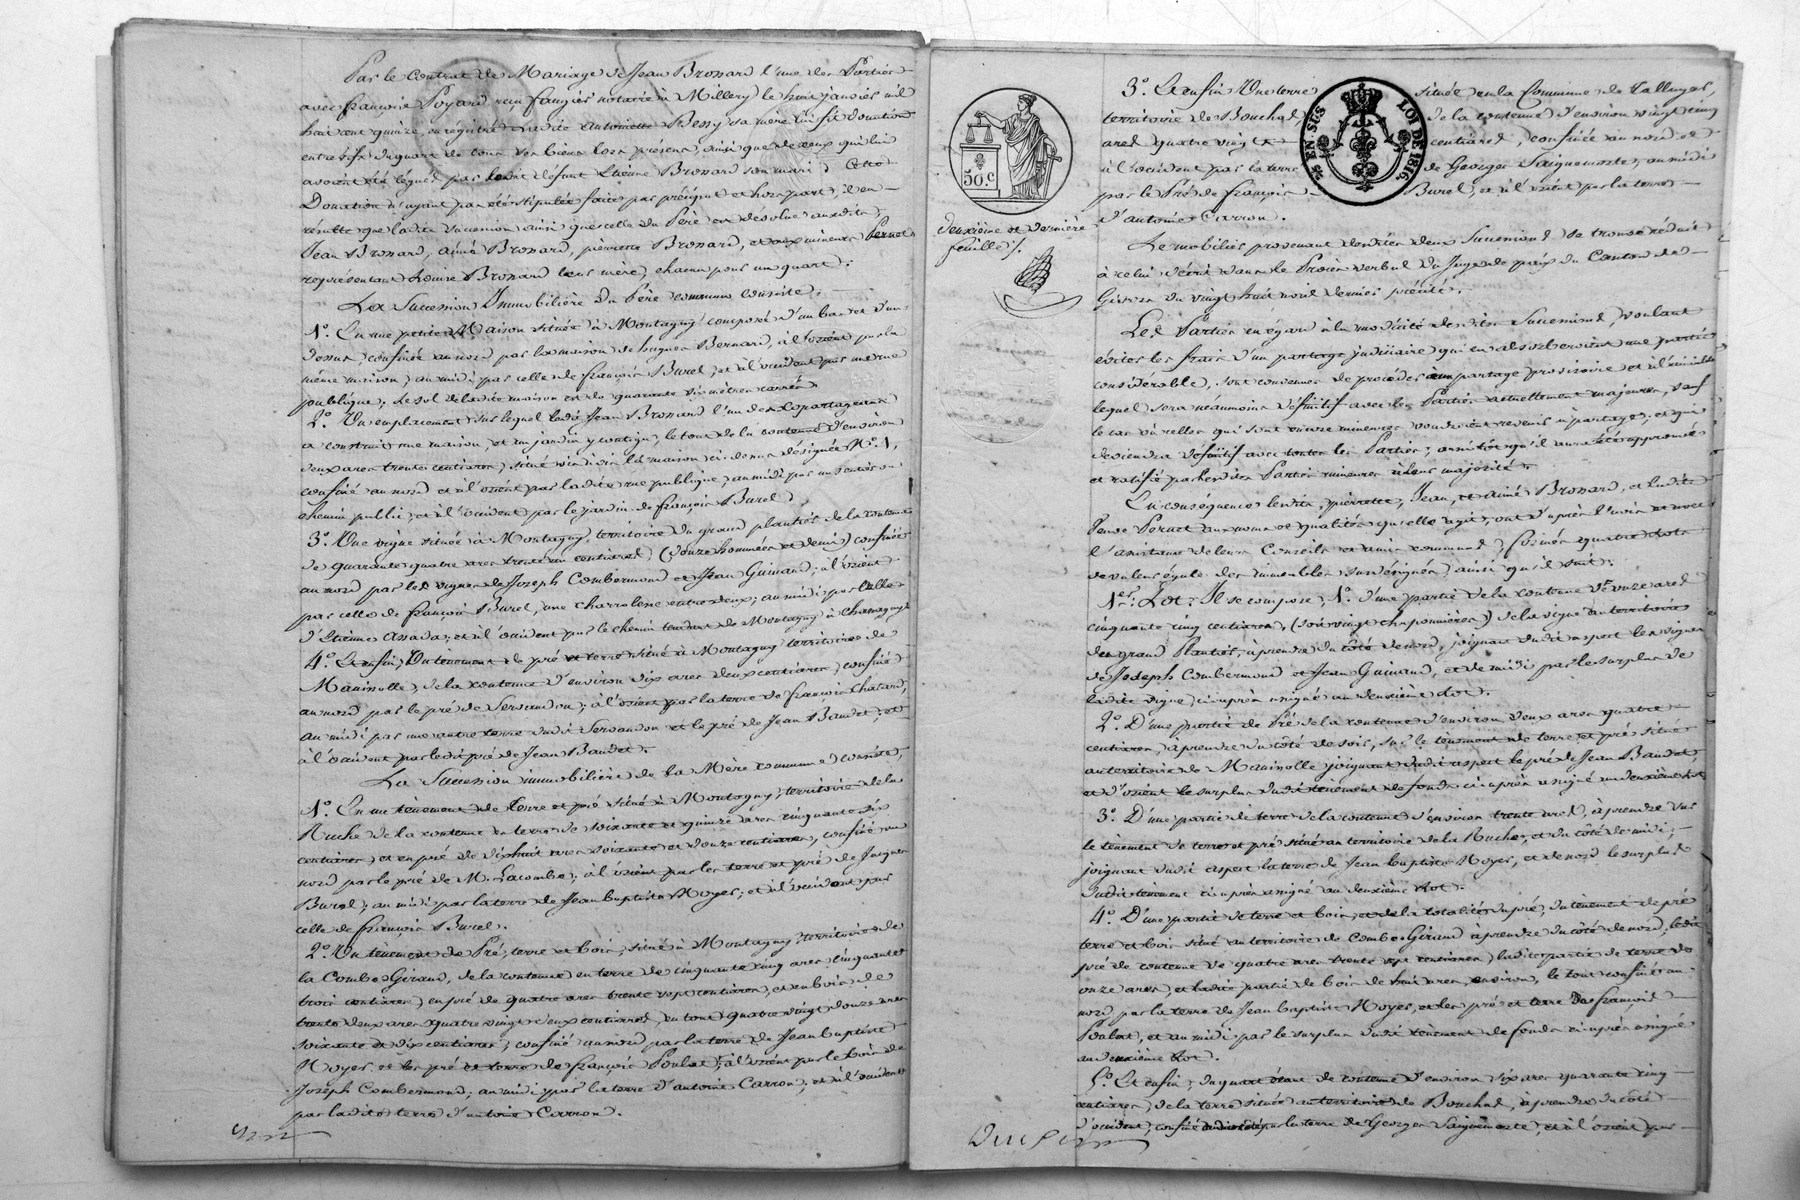 Par le Contrat de Mariage de Jean Brossard l'une des Parties
avec françoise Poyard reçu faugier notaire à Millery le huit janvier mil
huit cent quinze, enrégistré, ladite Antoinette Bessy sa mère lui fit donation
entrevifs du quart de tous ses biens lors présens, ainsi que de ceux qui lui
avoient été légués par ledit défunt Etienne Brossard son mari; Cette
Donation n'ayant pas été stipulée faite par préciput et hors part, il en
résulte que ladite succession ainsi que celle du Père est dévolue auxdits
Jean Brossard, aimé Brossard, pierrette Brossard, et aux mineurs Pernet
représentant Brossard leur mère, chacun pour un quart.
La Succession Immobilière du Père commun consiste,
1°. En une petite Maison située à Montagny composée d'un bas et d'un
dessus, confinée au nord par la maison de hugues Bernard, à l'orient par la
même maison, au midi par celle de françois Burel, et à l'occident par une rue
publique; Le sol de ladite maison est de quarante six mètres carrés
2°. Un emplacement sur lequel ledit Jean Brossard l'un des copartageans
a construit une maison, et un jardin y contigu, le tout de la contenue d'environ
deux ares trente centiares, situé vis à vis la maison ci-dessus désignée N°. 1,
confiné au nord et à l'orient par ladite rue publique, au midi par un sentier ou
chemin public, et à l'occident par le jardin de françois Burel;
3°. Une vigne située à Montagny, territoire du grand plantier de la contenue
de quarante quatre ares trente un centiares, (onze hommées et demi) confinée
au nord par les vignes de Joseph Combermond et Jean Guinand; à l'orient
par celle de françois Burel, une charrolerie entre deux; au midi par celle
d'Etienne Assada; et à l'occident par le chemin tendant de Montagny à Chassagny
4°. Et enfin, Un tènement de pré et terre situé à Montagny territoire de
Maninolle, de la contenue d'environ dix ares deux centiares, confiné
au nord par le pré de Servandon; à l'orient par la terre de françois Chatard,
au midi par une autre terre dudit Servandon et le pré de Jean Baudet; et
à l'occident par ledit pré de Jean Baudet.
La Succession immobilière de la Mère commune, consiste,
1°. En un tènement de terre et pré situé à Montagny, territoire de la
Ruche de la contenue en terre de soixante et quinze ares cinquante six
centiares, et en pré de dixhuit ares soixante et douze centiares, confiné au
nord par le pré de M. Lacombe; à l'orient par les terre et pré de Jacques
Burel; au midi par la terre de Jean baptiste Noyer; et à l'occident par
celle de françois Burel.
2°. Un tènement de Pré, terre et bois, situé à Montagny, territoire de
la Combe Giraud, de la contenue en terre de cinquante cinq ares cinquante
trois centiares, en pré de quatre ares trente sept centiares, et en bois de
trente deux ares quatre vingt deux centiares, en tout quatre vingt douze ares
soixante et dix centiares; confiné au nord par la terre de Jean baptiste
Noyer et les pré et terre de françois Poulat; à l'orient par le bois de
Joseph Combermond; au midi par la terre d'antoine Carron; et à l'occident
par ladite terre d'antoine Carron.
50.C
EN SUS
LOI DE 1816
deuxième et dernière
feuille /.
3°. Et enfin Une terre située en la Commune de Talluyers,
territoire de Bouchat de la contenue d'environ vingt cinq
ares quatre vingt centiares, confinée au nord et
à l'occident par la terre de Georges Saignemorte, au midi
par le Pré de françois Burel, et à l'orient par la terre
d'antoine Carron.
Le mobilier provenant desdites deux Successions se trouve réduit
à celui décrit dans le Procès verbal du Juge de paix du Canton de
Givors du vingt huit avril dernier précité.
Les Parties eu égard à la modicité desdites Successions, voulant
éviter les frais d'un partage judiciaire, qui en absorberoient une partie
considérable, sont convenues de procéder à un partage provisoire et à l'amiable
lequel sera néanmoins définitif avec les Parties actuellement majeures, sauf
le cas où celles qui sont encore mineures voudroient revenir à partage, et qui
deviendra définitif avec toutes les Parties, aussitôt qu'il aura été approuvé
et ratifié par lesdites Parties mineures à leur majorité.
En conséquence lesdits pierrette, Jean, et aimé Brossard, et ladite
Veuve Pernet aux noms et qualités qu'elle agit, ont d'après l'avis et avec
l'assistance de leurs Conseils et amis communs, formés quatre lots
de valeur égale des immeubles susdésignés, ainsi qu'il suit:
1er. Lot. Il se compose, 1°. d'une partie de la contenue de onze ares
cinquante cinq centiares, de la vigne au territoire
du grand Plantier, à prendre du côté de nord, joignant dudit aspect les vignes
de Joseph Combermond et Jean Guinand, et de midi par le surplus de
ladite vigne, ci-après assigné au deuxième Lot.
2°. D'une partie de Pré de la contenue d'environ deux ares quatre
centiares, à prendre du côté de soir, sur le tènement de terre et pré situé
au territoire de Maninolle joignant dudit aspect le pré de Jean Baudet,
et d'orient le surplus dudit tènement de fonds ci-après assigné au deuxième lot
3°. D'une partie de terre de la contenue d'environ trente ares, à prendre sur
le tènement de terre et pré situé au territoire de la Ruche, et du côté de midi,
joignant dudit aspect la terre de Jean baptiste Noyer, et de nord le surplus
dudit tènement ci-après assigné au deuxième Lot.
4°. D'une partie de terre et bois, et de la totalité du pré, du tènement de pré
terre et bois situé au territoire de Combe Giraud à prendre du côté de nord, ledit
pré de contenue de quatre ares trente sept centiares, ladite partie de terre de
onze ares, et ladite partie de bois de huit ares, environ, le tout confiné au
nord par la terre de Jean baptiste Noyer, et les pré et terre de françois
Poulat, et au midi par le surplus dudit tènement de fonds ci-après assigné
au deuxième Lot.
5°. Et enfin, du quart étant de contenue d'environ six ares quarante cinq
centiares, de la terre située au territoire de Bouchat, à prendre du côté
d'occident, confiné par la terre de Georges Saignemorte, et à l'orient par